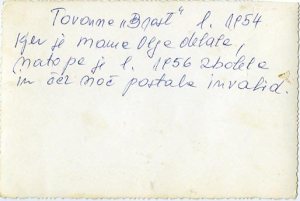 Tovarna "Brast" l. 1954
Kjer je mama Olja delala,
nato pa je l. 1956 zbolela
in čez noč postala invalid.